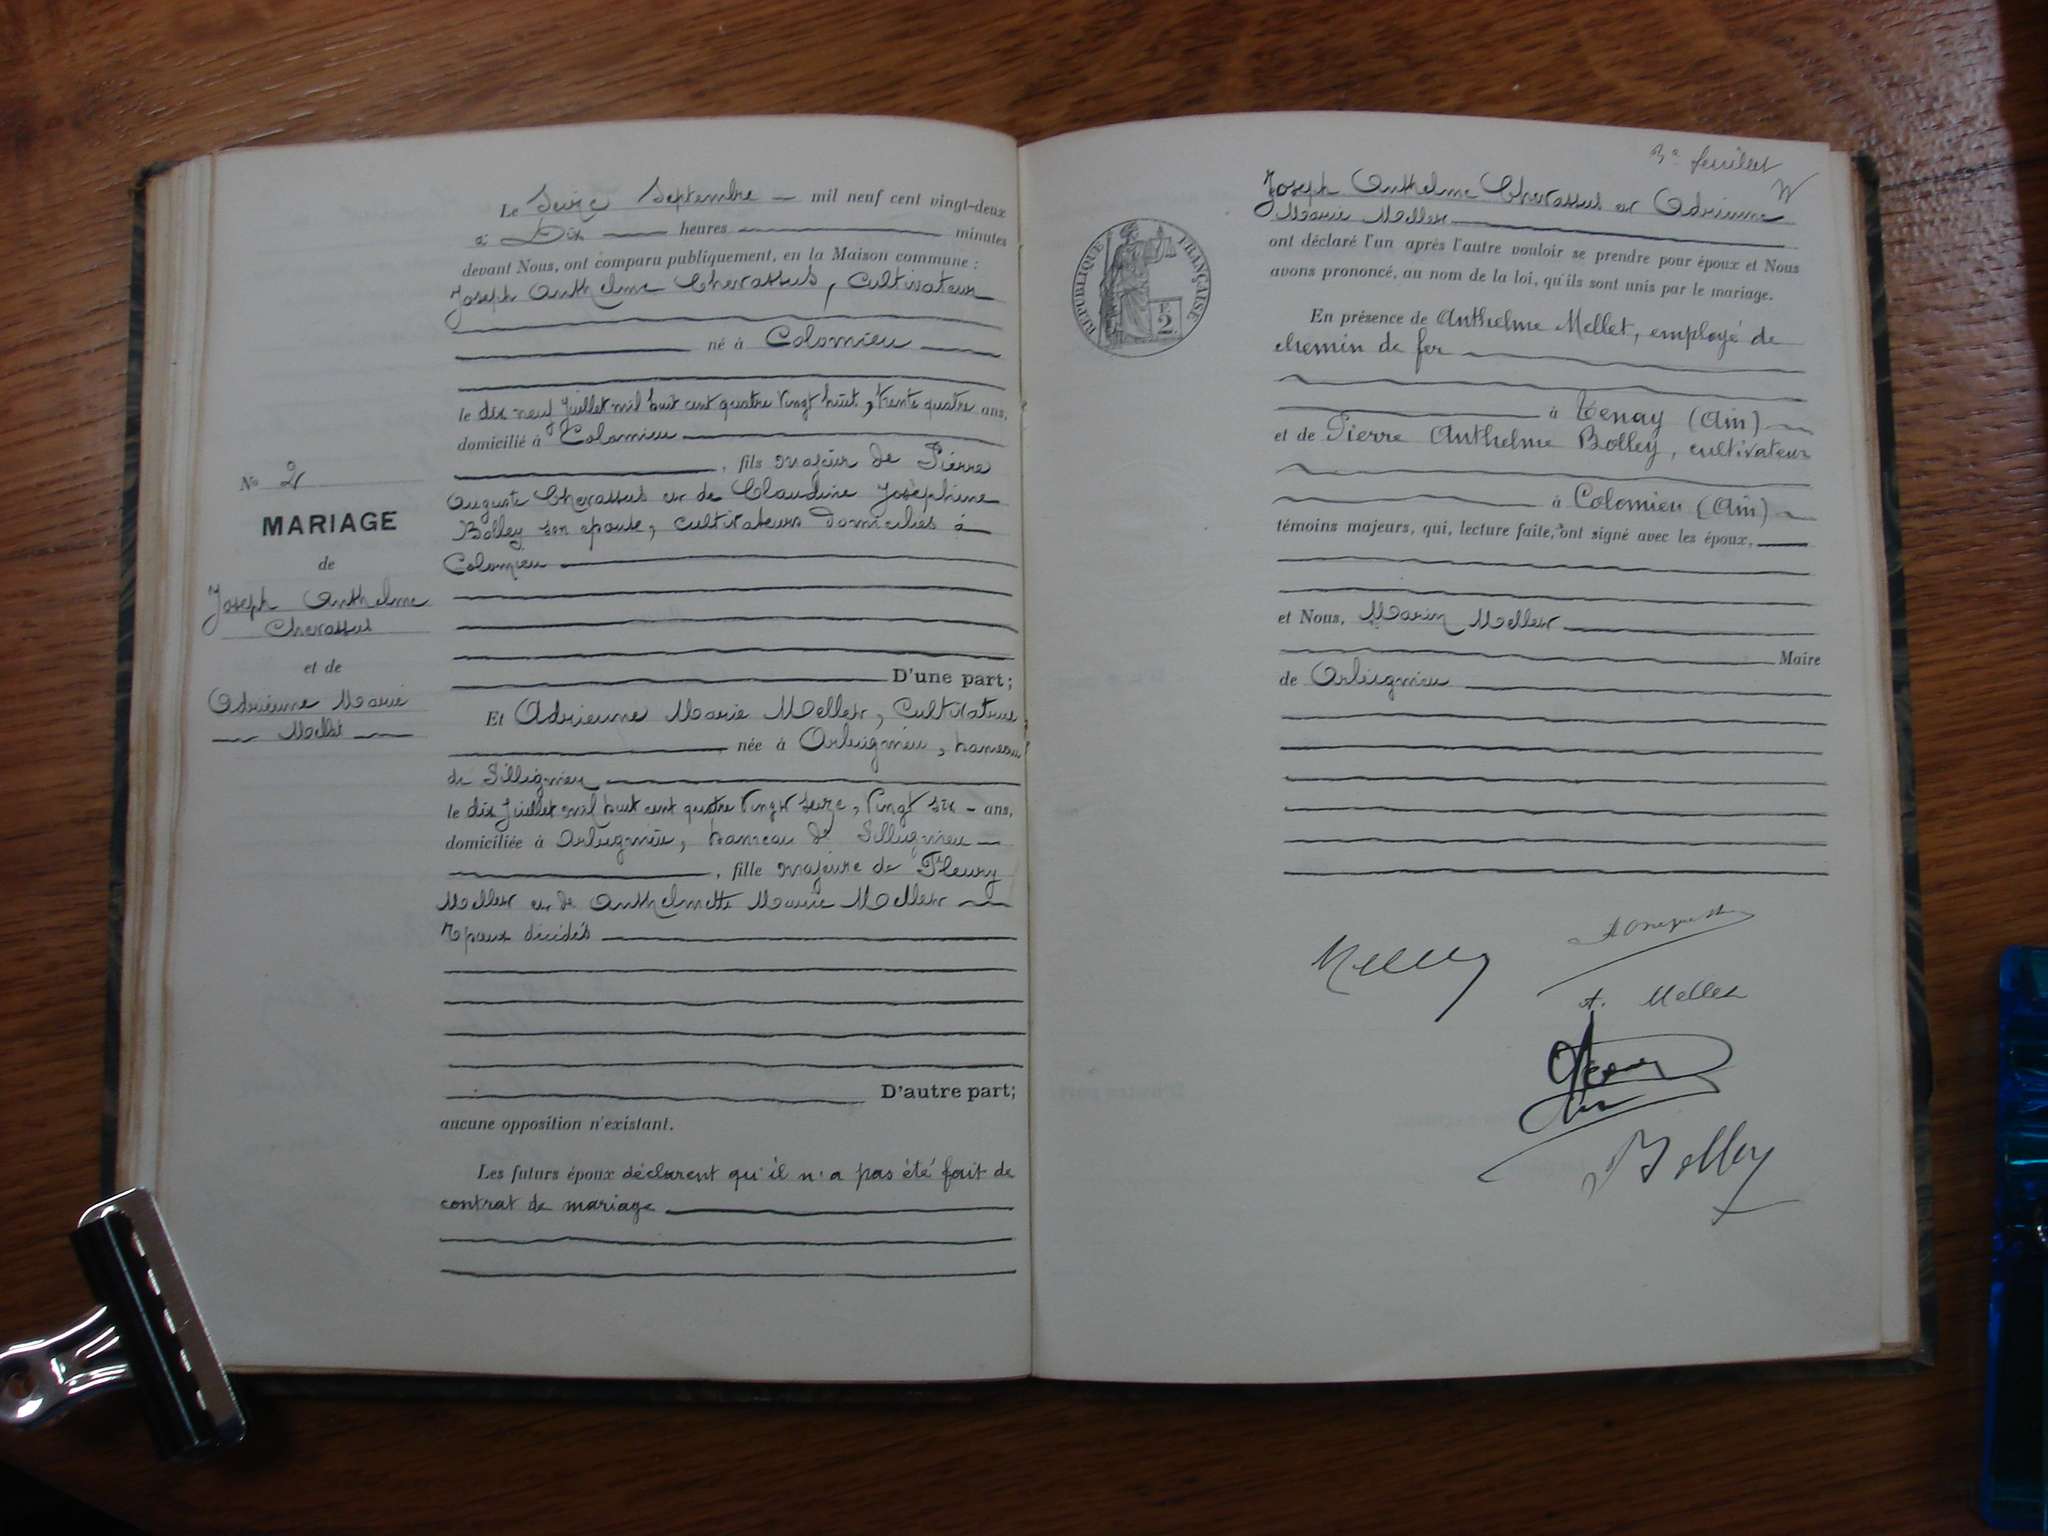 Le Seize Septembre mil neuf cent vingt-deux
à Dix heures minutes
devant Nous, ont comparu publiquement, en la Maison commune :
Joseph Anthelme Chevassus, Cultivateur
né à Colomieu
le dix neuf Juillet mil huit cent quatre vingt huit, trente quatre ans,
domicilié à Colomieu
, fils majeur de Pierre
Auguste Chevassus et de Claudine Joséphine
Bolley son epouse, cultivateurs domiciliés à
Colomieu
D'une part;
No 2
MARIAGE
de
Joseph Anthelme
Chevassus
et de
Adrienne Marie
Mellet
Et Adrienne Marie Mellet, Cultivatrice
née à Arbignieu, hameau
de Sillignieu
le dix Juillet mil huit cent quatre vingt seize, vingt six ans,
domiciliée à Arbignieu, hameau de Sillignieu
, fille majeure de Fleury
Mellet et de Anthelmette Marie Mellet
Epoux décidés
D'autre part;
aucune opposition n'existant.
Les futurs époux déclarent qu'il n'a pas été fait de
contrat de mariage
3e feuillet
Joseph Anthelme Chevassus et Adrienne
Marie Mellet
RÉPUBLIQUE FRANÇAISE
2 F.
ont déclaré l'un après l'autre vouloir se prendre pour époux et Nous
avons prononcé, au nom de la loi, qu'ils sont unis par le mariage.
En présence de Anthelme Mellet, employé de
chemin de fer
à Tenay (Ain)
et de Pierre Anthelme Bolley, cultivateur
à Colomieu (Ain)
témoins majeurs, qui, lecture faite, ont signé avec les époux,
et Nous, Marin Mellet
Maire
de Arbignieu
A. Mellet
Bolley